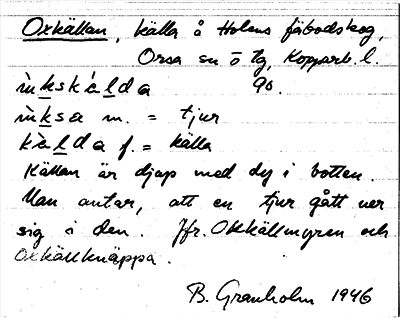 Oxkällan, källa å Holens fäbodskog,
Orsa sn ö tg, Kopparb. l.
ìnkskálda 90.
ìnksa m. = tjur
kàlda f. = källa
Källan är djup med dy i botten.
Man antar, att en tjur gått ner
sig i den. Jfr. Oxkällmyren och
Oxkällknäppa.
B. Granholm 1946